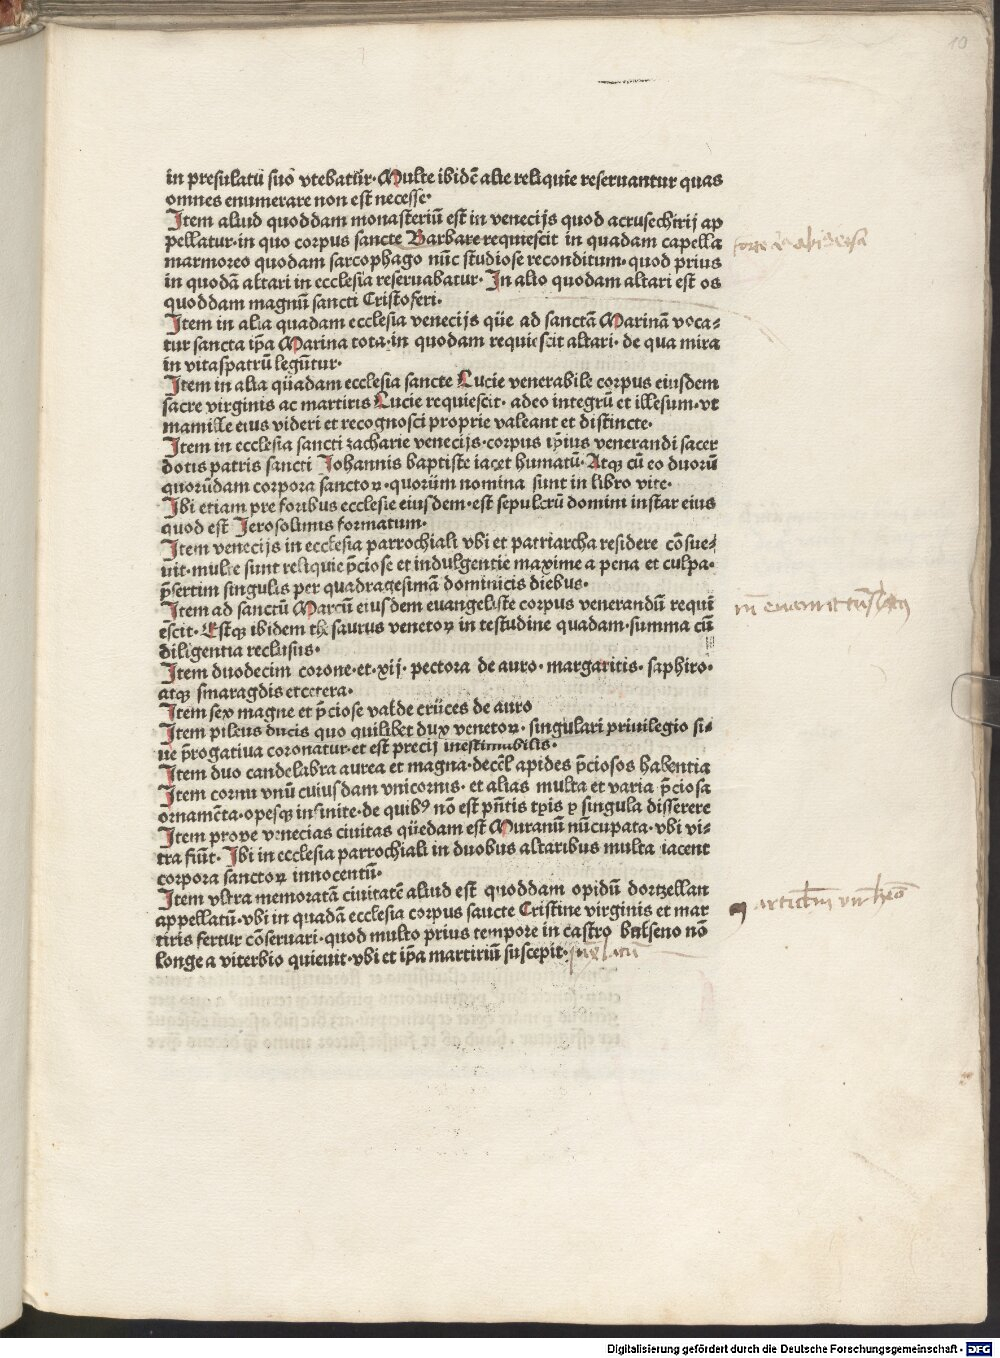 10
in presulatū suo vtebatur·Multe ibidē alie reliquie reseruantur quas
omnes enumerare non est necesse·
Item aliud quoddam monasteriū est in venecijs quod acrusechirij ap
pellatur·in quo corpus sancte Barbare requiescit in quadam capella
marmoreo quodam sarcophago nūc studiose reconditum·quod prius
in quodā altari in ecclesia reseruabatur· In alio quodam altari est os
quoddam magnū sancti Cristoferi·
Item in alia quadam ecclesia venecijs que ad sanctā Marinā voca-
tur sancta ip̄a Marina tota·in quodam requiescit altari· de qua mira
in vitaspatrū legūtur·
Item in alia quadam ecclesia sancte Lucie venerabile corpus eiusdem
sacre virginis ac martiris Lucie requiescit· adeo integrū et illesum·vt
mamille eius videri et recognosci proprie valeant et distincte·
Item in ecclesia sancti zacharie venecijs·corpus ip̄ius venerandi sacer
dotis patris sancti Iohannis baptiste iacet humatū· Atqꝫ cū eo duorū
quorūdam corpora sanctoꝝ·quorum nomina sunt in libro vite·
Ibi etiam pre foribus ecclesie eiusdem·est sepulcrū domini instar eius
quod est Ierosolimis formatum·
Item venecijs in ecclesia parrochiali vbi et patriarcha residere cōsue-
uit·multe sunt reliquie p̄ciose et indulgentie maxime a pena et culpa·
p̄sertim singulis per quadragesimā dominicis diebus·
Item ad sanctū Marcū eiusdem euangeliste corpus venerandū requi
escit· Estqꝫ ibidem thesaurus venetoꝝ in testudine quadam·summa cū
diligentia reclusus·
Item duodecim corone·et·xij· pectora de auro· margaritis· saphiro·
atqꝫ smaragdis etcetera·
Item sex magne et p̄ciose valde cruces de auro
Item pileus ducis quo quilibet dux venetoꝝ· singulari priuilegio si-
ue p̄rogatiua coronatur·et est precij inestimabilis·
Item duo candelabra aurea et magna·decēl apides p̄ciosos habentia
Item cornu vnū cuiusdam vnicornis· et alias multa et varia p̄ciosa
ornamēta·opesqꝫ infinite·de quibꝰ nō est pn̄tis tp̄is ꝑ singula disserere
Item prope venecias ciuitas quedam est Muranū nūcupata·vbi vi-
tra fiūt· Ibi in ecclesia parrochiali in duobus altaribus multa iacent
corpora sanctoꝝ innocentū·
Item vltra memoratā ciuitatē aliud est quoddam opidū dortzellan
appellatū·vbi in quadā ecclesia corpus sancte Cristine virginis et mar
tiris fertur cōseruari·quod multo prius tempore in castro bulseno nō
longe a viterbio quieuit·vbi et ip̄a martiriū suscepit·
Digitalisierung gefördert durch die Deutsche Forschungsgemeinschaft - DFG